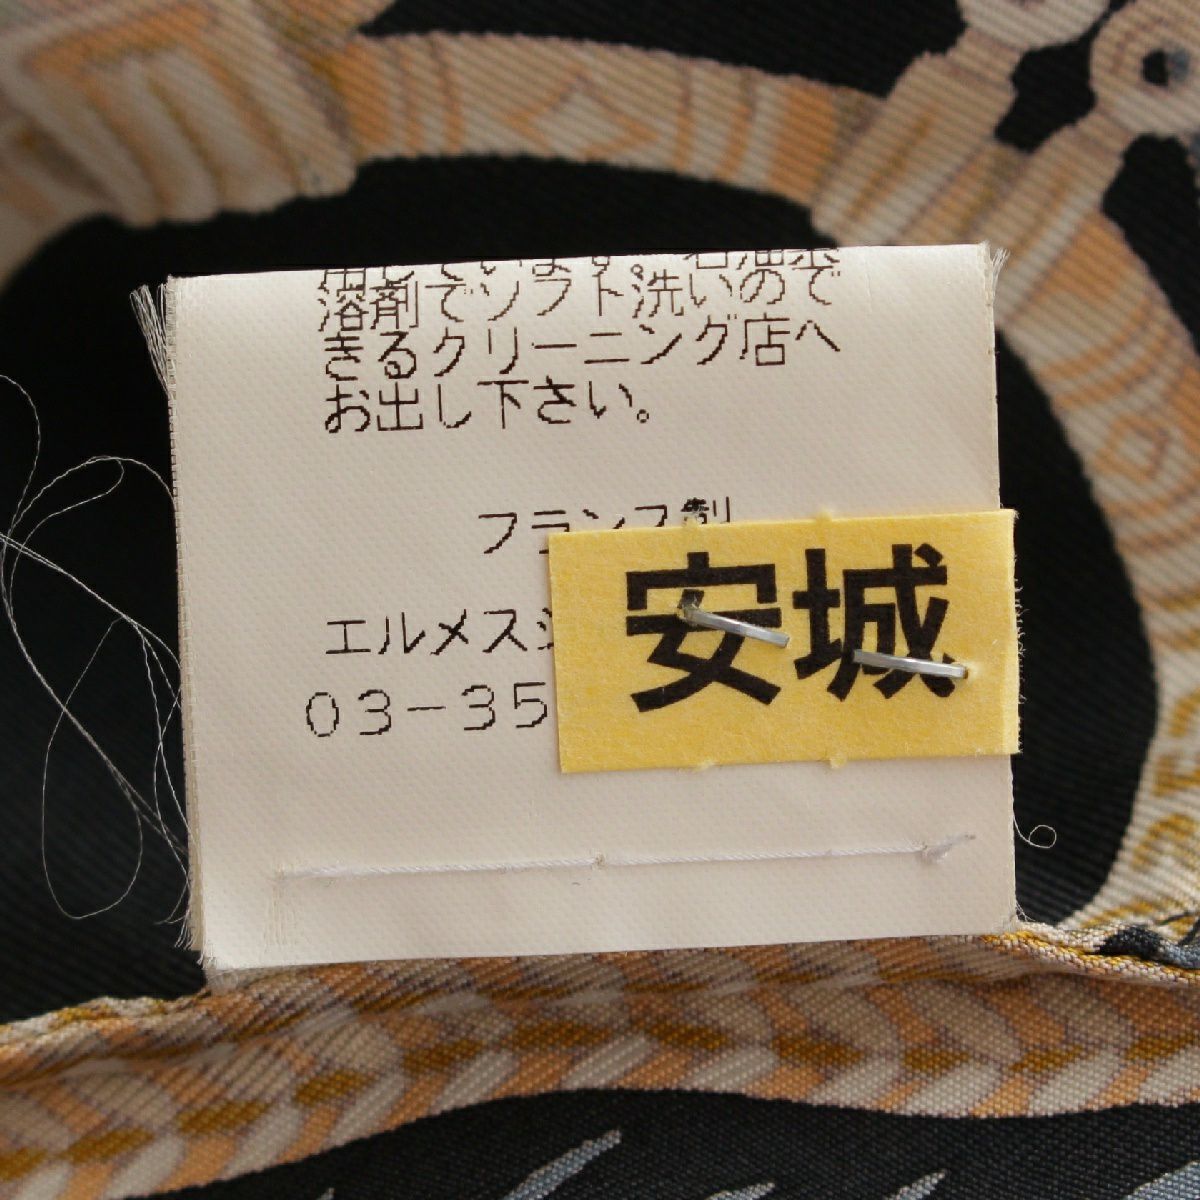 用しています。石油系
溶剤でソフト洗いので
きるクリーニング店へ
お出し下さい。
フランス製
エルメスジ
03-35
安城